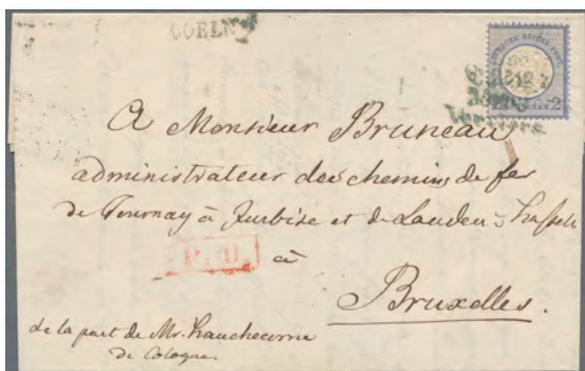 COELN
A Monsieur Bruneau
administrateur des chemins de fer
de Tournay à Jurbise et de Landen à Hasselt
P.D.
à
Bruxelles.
de la part de Mr. Hauchecorne
de Cologne.
Verviers